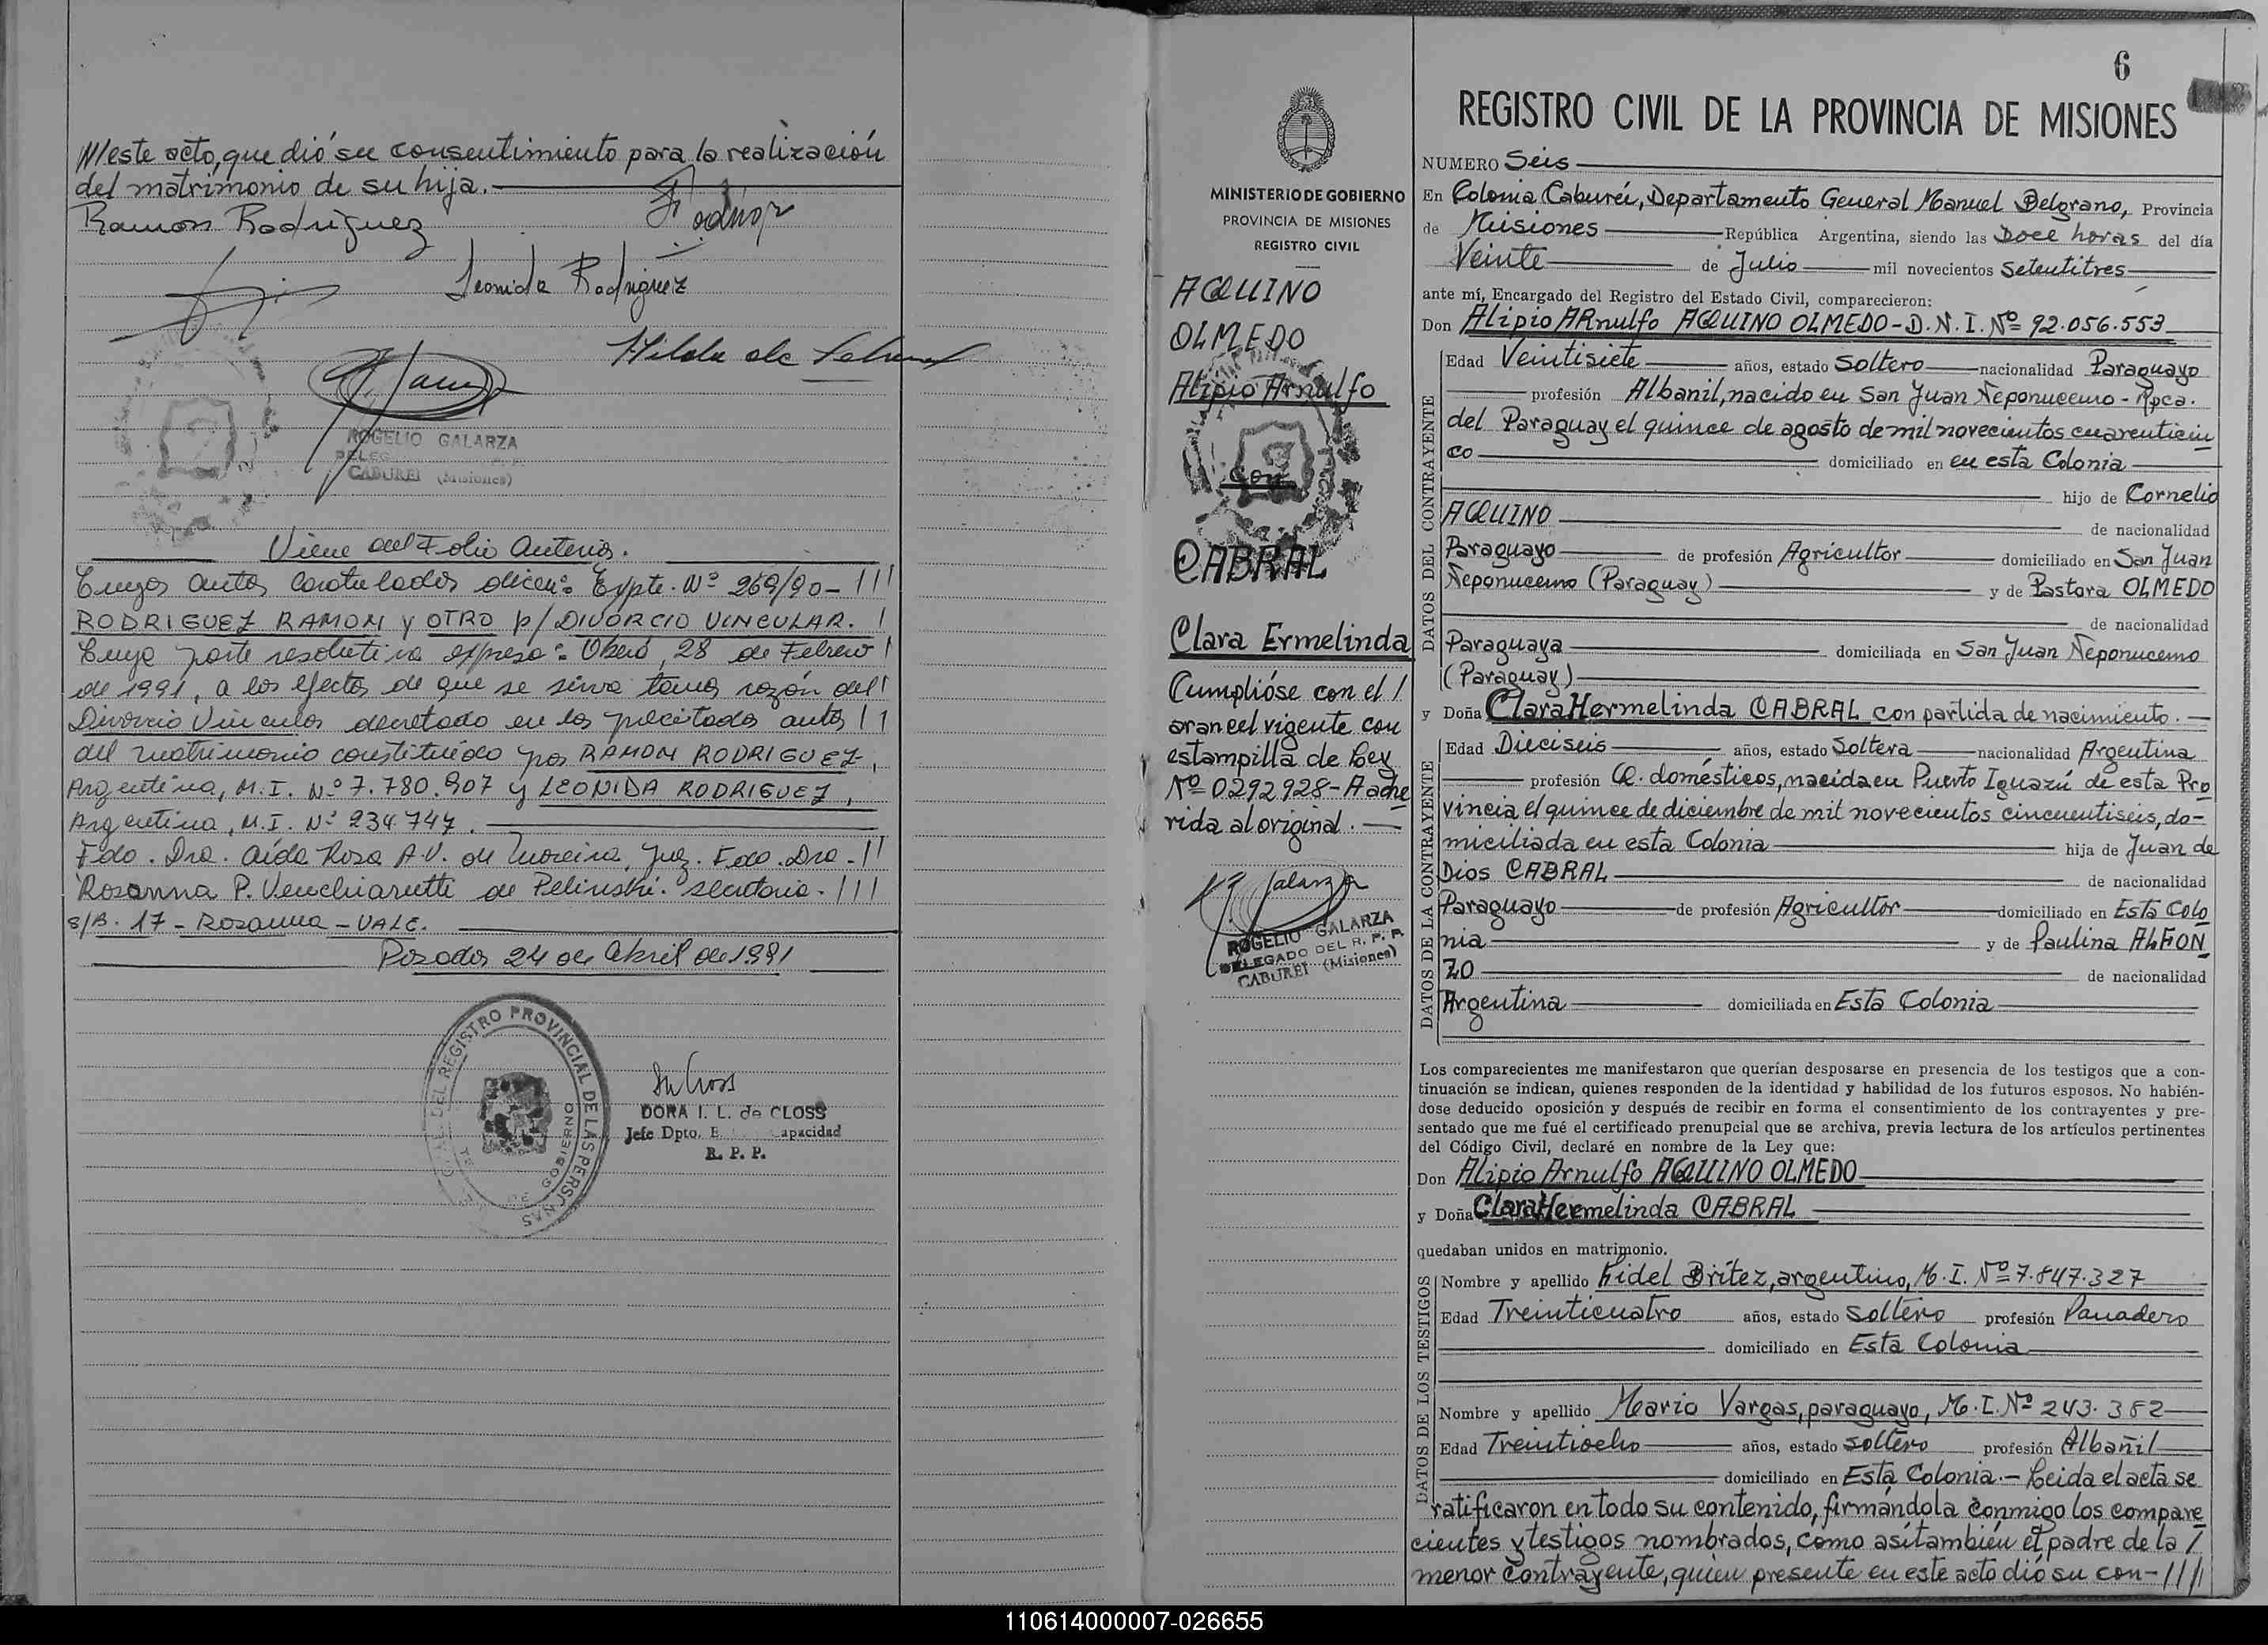 ///este acto, que dió su consentimiento para la realización
del matrimonio de su hija.
Ramon Rodriguez
Leonida Rodriguez
Hilda de
ROGELIO GALARZA
DELEG
CABUREI (Misiones)
Viene del Folio Anterior.
Cuyos autos caratulados dicen: Expte. Nº 269/90- ///
RODRIGUEZ RAMON y OTRO p/ DIVORCIO VINCULAR. /
Cuya parte resolutiva expresa: Oberá, 28 de Febrero /
de 1991, a los efectos de que se sirva tomar razón del /
Divorcio Vincular decretado en los precitados autos //
del matrimonio constituido por RAMON RODRIGUEZ,
Argentino, M.I. Nº 7.780.907 y LEONIDA RODRIGUEZ,
Argentina, M.I. Nº 234.747.
Fdo. Dra. Aida Rosa A.V. de Moreira, Juez. Fdo. Dra. //
Rosanna P. Venchiarutti de Pelinski. Secretaria. ///
s/B. 17 - Rosanna - VALE.
Posadas 24 de Abril de 1991
REGISTRO PROVINCIAL DE LAS PERSONAS
DE GOBIERNO
DORA I. L. de CLOSS
Jefe Dpto. E apacidad
R. P. P.
MINISTERIO DE GOBIERNO
PROVINCIA DE MISIONES
REGISTRO CIVIL
AQUINO
OLMEDO
Alipio Arnulfo
con
CABRAL
Clara Ermelinda
Cumplióse con el /
arancel vigente con
estampilla de Ley
Nº 0292928-A adhe
rida al original.
ROGELIO GALARZA
DELEGADO DEL R. P. P.
CABUREI (Misiones)
6
REGISTRO CIVIL DE LA PROVINCIA DE MISIONES
NUMERO Seis
En Colonia Caburéi, Departamento General Manuel Belgrano, Provincia
de Misiones República Argentina, siendo las Doce horas del día
Veinte de Julio mil novecientos setentitres
ante mí, Encargado del Registro del Estado Civil, comparecieron:
Don Alipio ARnulfo AQUINO OLMEDO-D.N.I. Nº 92.056.553
DATOS DEL CONTRAYENTE
Edad Veintisiete años, estado Soltero nacionalidad Paraguayo
profesión Albanil, nacido en San Juan Neponuceno - Rpca.
del Paraguay el quince de agosto de mil novecientos cuarenticin
co domiciliado en en esta Colonia
hijo de Cornelio
AQUINO de nacionalidad
Paraguayo de profesión Agricultor domiciliado en San Juan
Neponuceno (Paraguay) y de Pastora OLMEDO
de nacionalidad
Paraguaya domiciliada en San Juan Neponuceno
(Paraguay)
y Doña Clara Hermelinda CABRAL con partida de nacimiento.
DATOS DE LA CONTRAYENTE
Edad Dieciseis años, estado Soltera nacionalidad Argentina
profesión Q. domésticos, nacida en Puerto Iguazú de esta Pro
vincia el quince de diciembre de mil novecientos cincuentiseis, do-
miciliada en esta Colonia hija de Juan de
Dios CABRAL de nacionalidad
Paraguayo de profesión Agricultor domiciliado en Esta Colo
nia y de Paulina ALFON
ZO de nacionalidad
Argentina domiciliada en Esta Colonia
Los comparecientes me manifestaron que querían desposarse en presencia de los testigos que a con-
tinuación se indican, quienes responden de la identidad y habilidad de los futuros esposos. No habién-
dose deducido oposición y después de recibir en forma el consentimiento de los contrayentes y pre-
sentado que me fué el certificado prenupcial que se archiva, previa lectura de los artículos pertinentes
del Código Civil, declaré en nombre de la Ley que:
Don Alipio Arnulfo AQUINO OLMEDO
y Doña Clara Hermelinda CABRAL
quedaban unidos en matrimonio.
DATOS DE LOS TESTIGOS
Nombre y apellido Fidel Britez, argentino, M.I. Nº 7.847.327
Edad Treinticuatro años, estado soltero profesión Panadero
domiciliado en Esta Colonia
Nombre y apellido Mario Vargas, paraguayo, M.I. Nº 243.382
Edad Treintiocho años, estado soltero profesión Albañil
domiciliado en Esta Colonia.- Leida el acta se
ratificaron en todo su contenido, firmándola conmigo los compare
cientes y testigos nombrados, como asitambién el padre de la /
menor contrayente, quien presente en este acto dió su con-////
110614000007-026655